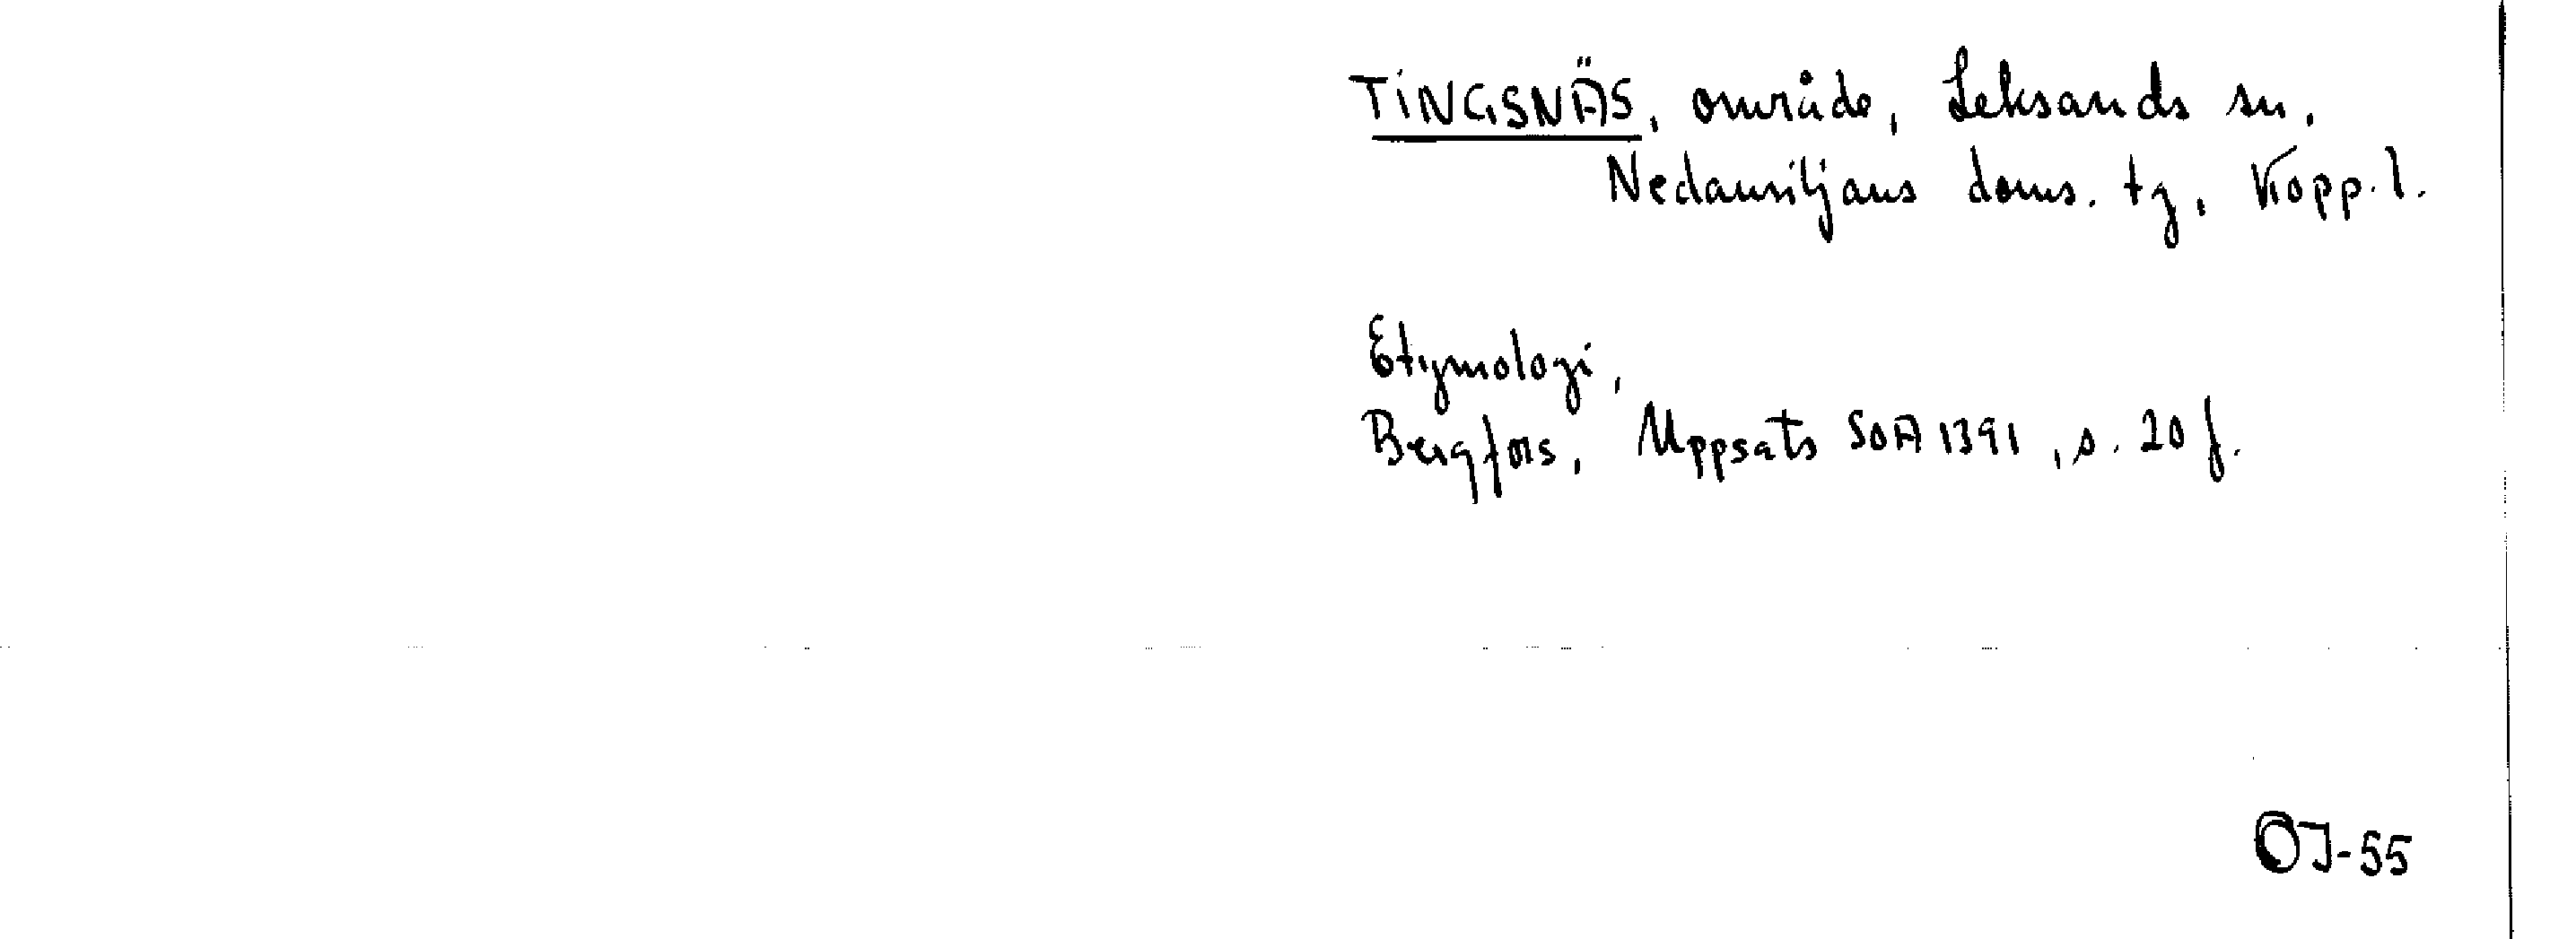 TINGSNÄS, område, Leksands sn,
Nedansiljans doms. tg, Kopp. l.
Etymologi,
Bergfors, Uppsats SOA 1391, s. 20 f.
OJ-55